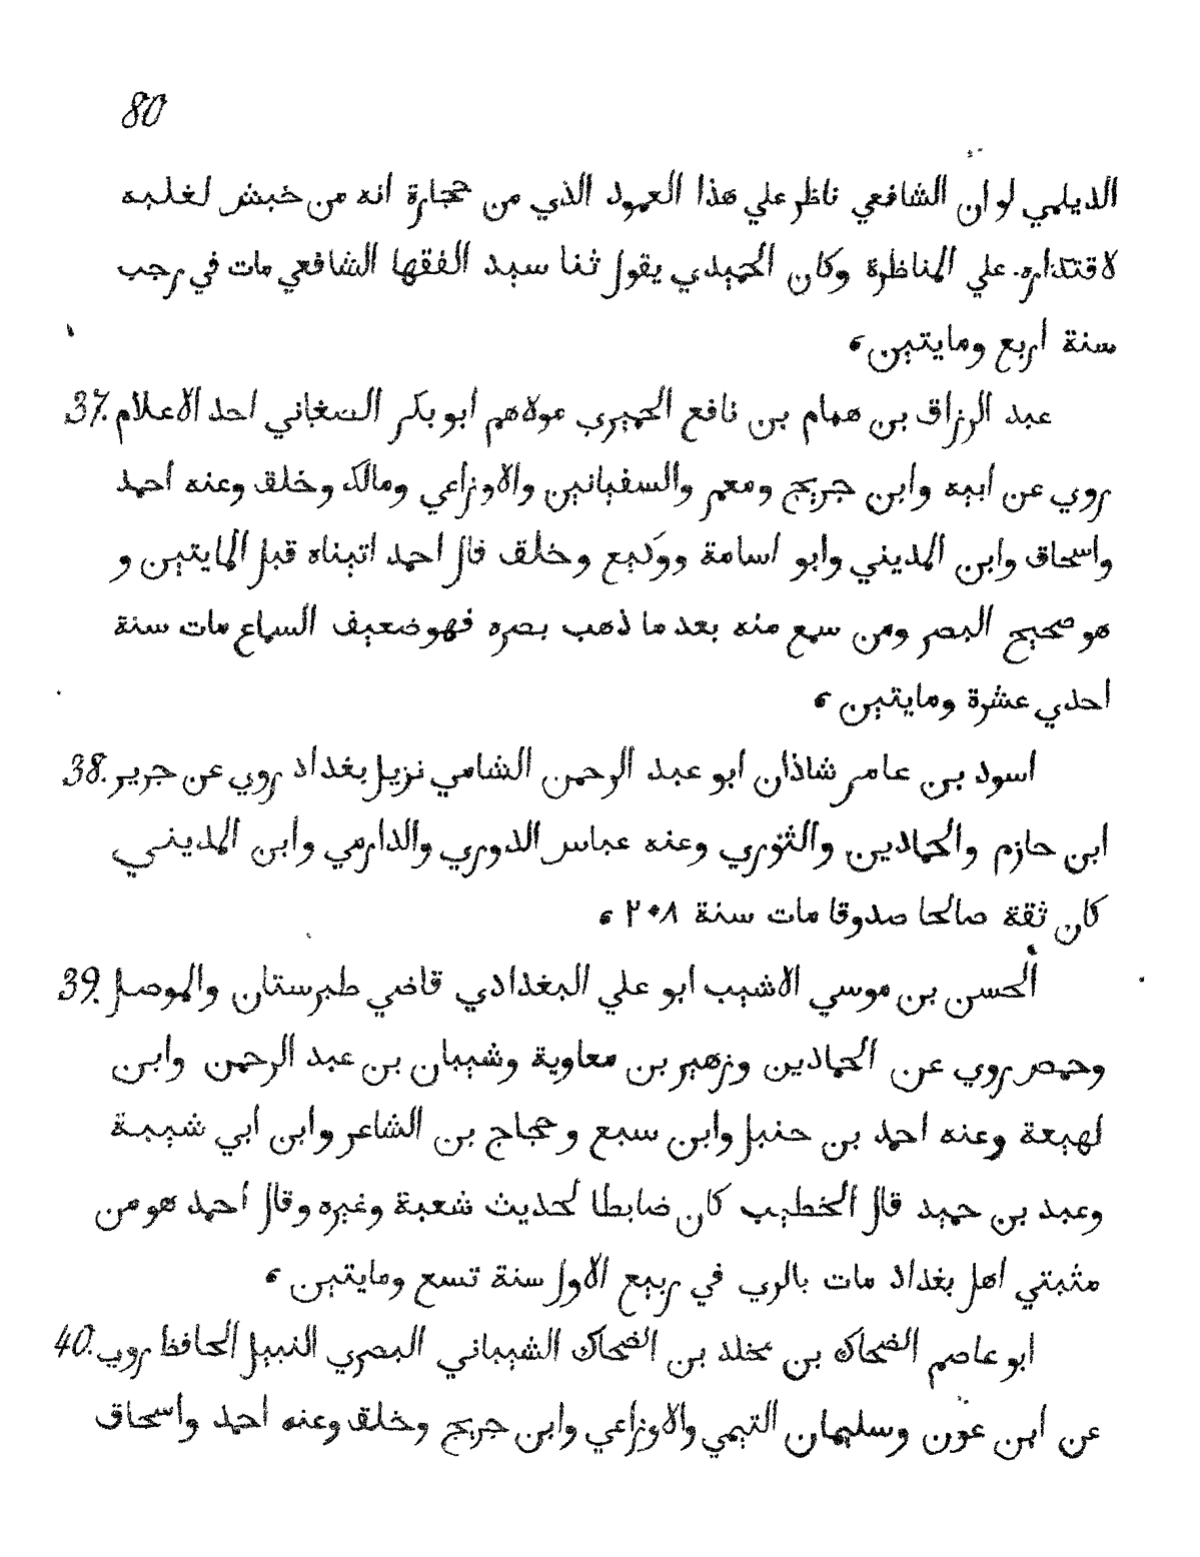 80
الديلمي لو ان الشافعي ناظر علي هذا العمود الذي من حجارة انه من خبش لغلبه
لاقتداره علي المناظرة وكان الحميدي يقول ثنا سيد الفقها الشافعي مات في رجب
سنة اربع ومايتين،
37. عبد الرزاق بن همام بن نافع الحميري مولاهم ابو بكر الصغاني احد الاعلام
روي عن ابيه وابن جريج ومعمر والسفيانين والاوزاعي ومالك وخلق وعنه احمد
واسحاق وابن المديني وابو اسامة ووكيع وخلق قال احمد اتيناه قبل المايتين و
هو صحيح البصر ومن سمع منه بعد ما ذهب بصره فهو ضعيف السماع مات سنة
احدي عشرة ومايتين،
38. اسود بن عامر شاذان ابو عبد الرحمن الشامي نزيل بغداد روي عن جرير
ابن حازم والحمادين والثوري وعنه عباس الدوري والدارمي وابن المديني
كان ثقة صالحا صدوقا مات سنة ٢٠٨،
39. الحسن بن موسي الاشيب ابو علي البغدادي قاضي طبرستان والموصل
وحمص روي عن الحمادين وزهير بن معاوية وشيبان بن عبد الرحمن وابن
لهيعة وعنه احمد بن حنبل وابن سبع وحجاج بن الشاعر وابن ابي شيبة
وعبد بن حميد قال الخطيب كان ضابطا لحديث شعبة وغيره وقال احمد هو من
مثبتي اهل بغداد مات بالري في ربيع الاول سنة تسع ومايتين،
40. ابو عاصم الضحاك بن مخلد بن الضحاك الشيباني البصري النبيل الحافظ روي
عن ابن عون وسليمان التيمي والاوزاعي وابن جريج وخلق وعنه احمد واسحاق